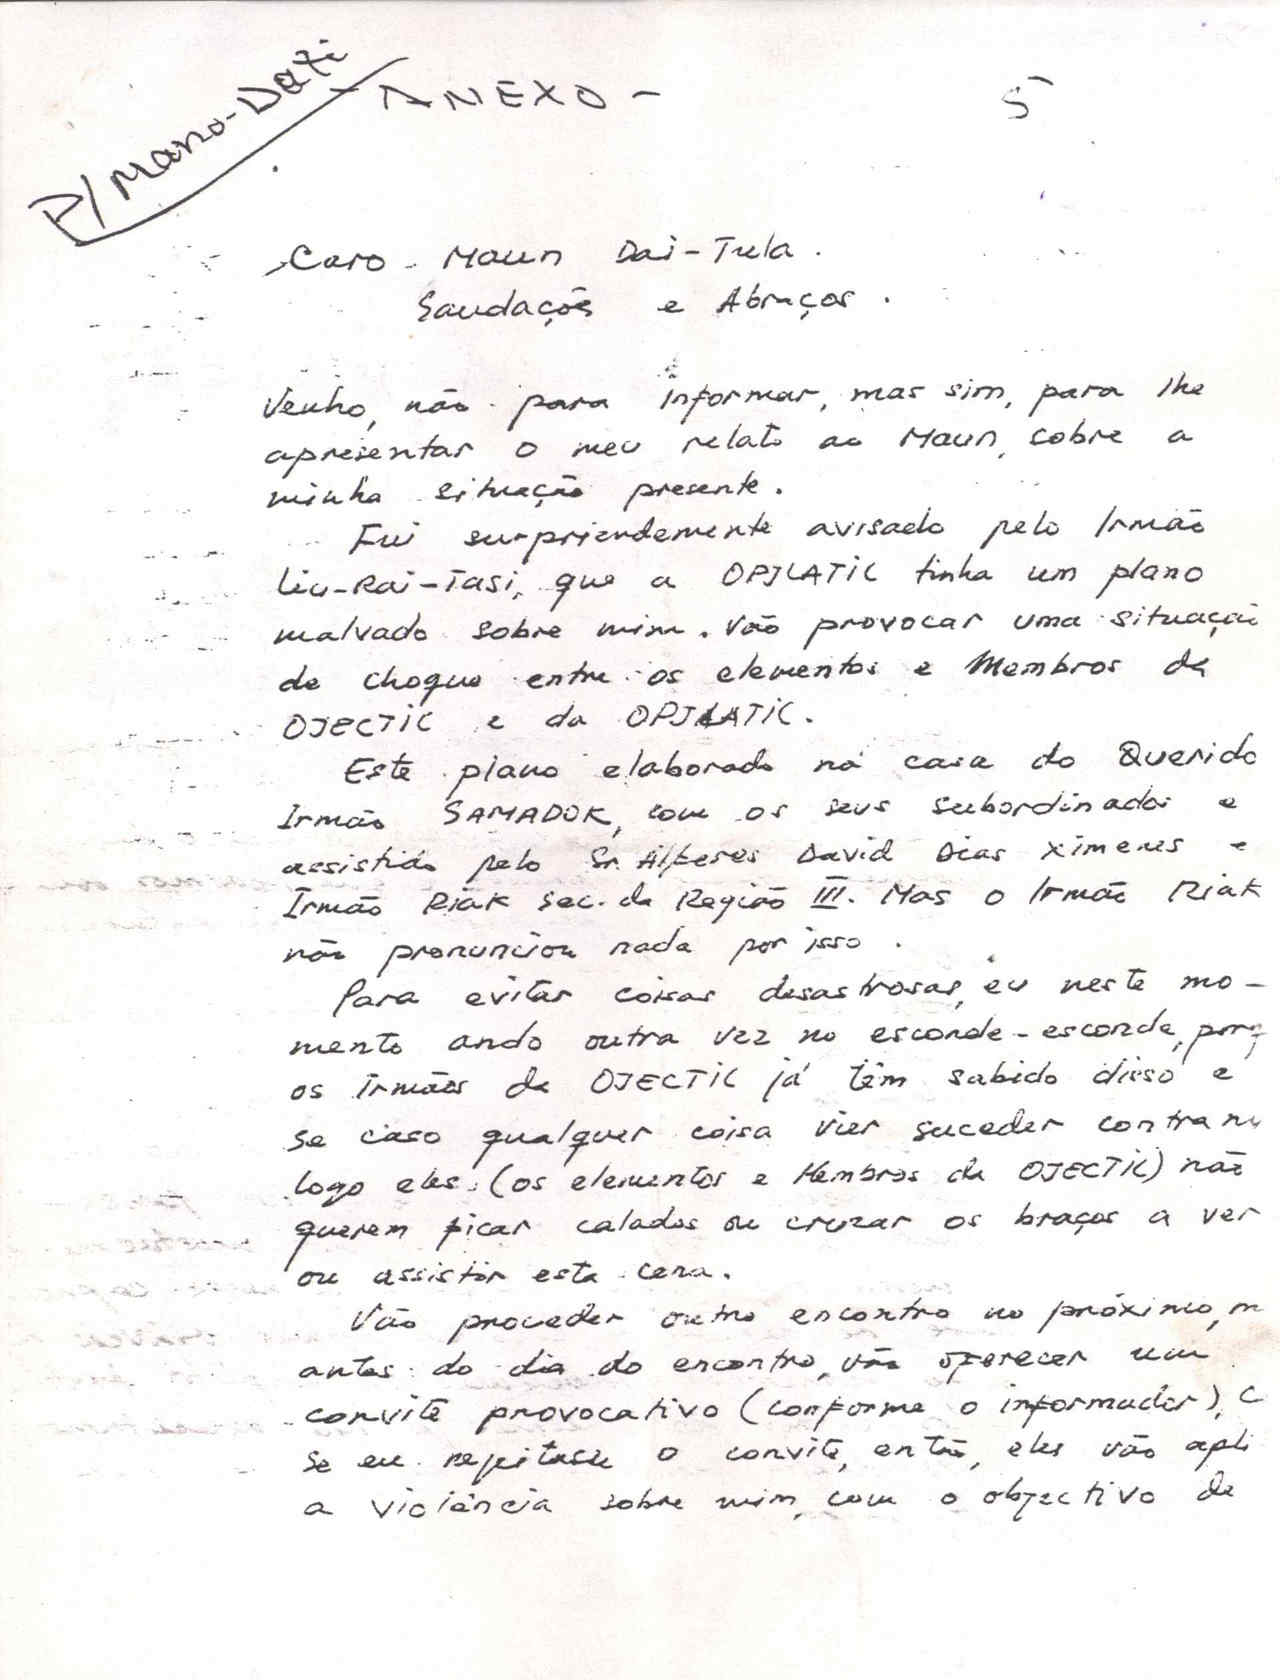 P/Mano-Dati
- ANEXO - 5
Caro Maun Dai-Tula.
Saudações e Abraços.
Venho, não para informar, mas sim, para lhe
apresentar o meu relato ao Maun, sobre a
minha situação presente.
Fui surpriendemente avisado pelo Irmão
Liu-Rai-Tasi, que a OPJLATIL tinha um plano
malvado sobre mim. Vão provocar uma situação
de choque entre os elementos e Membros da
OJECTIL e da OPJLATIL.
Este plano elaborado na casa do Querido
Irmão SAMADUK, com os seus subordinados e
assistido pelo Sr. Alferes David Dias Ximenes e
Irmão Riak Sec. da Região III. Mas o Irmão Riak
não pronunciou nada por isso.
Para evitar coisas desastrosas, eu neste mo-
mento ando outra vez no esconde-esconde, porq
os Irmãos da OJECTIL já têm sabido disso e
se caso qualquer coisa vier suceder contra
logo eles (os elementos e Membros da OJECTIL) não
querem ficar calados ou cruzar os braços a ver
ou assistir esta cena.
Vão proceder outro encontro no próximo,
antes do dia do encontro, vão oferecer um
convite provocativo (conforme o informador),
se eu rejeitasse o convite, então, eles vão apli
a violência sobre mim, com o objectivo de